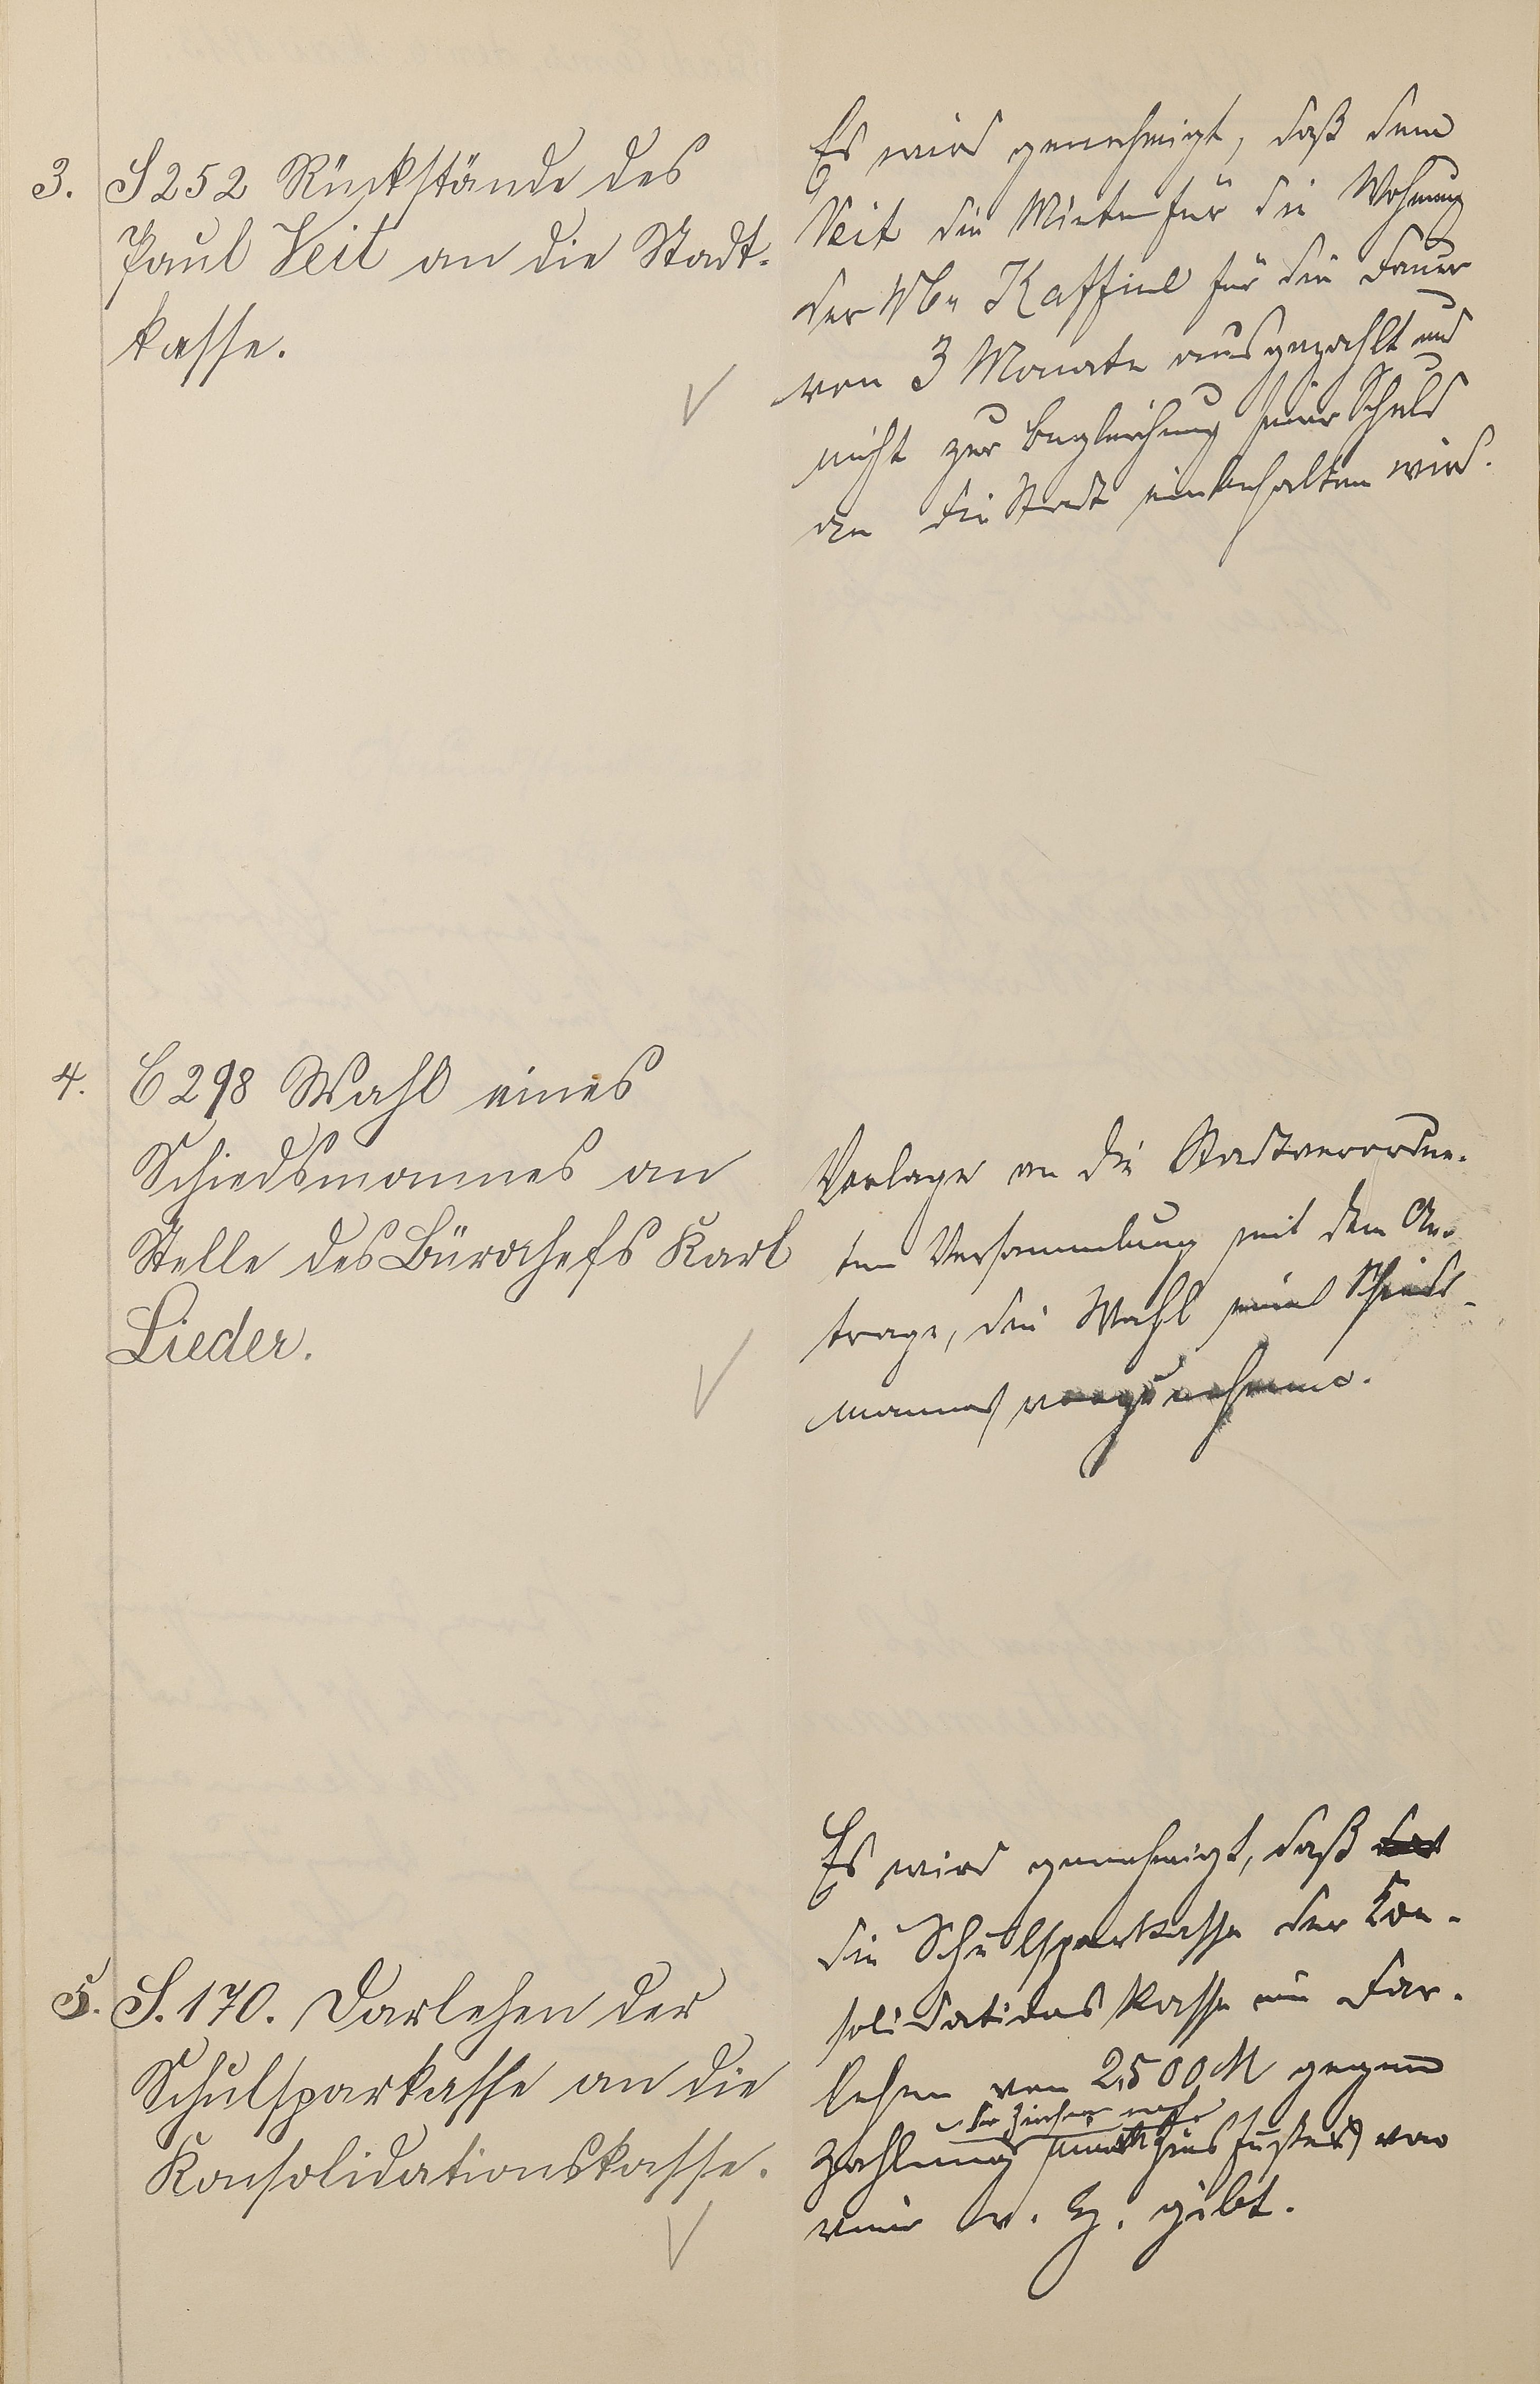 3. S 252 Rückstände des
Paul Veit an die Stadt-
kasse.
Es wird genehmigt, daß dem
Veit die Mieten für die Wohnung
der Wwe Kaffine für die Dauer
von 3 Monate ausgezahlt und
nicht zur Begleichung seiner Schuld
an die Stadt einbehalten wird.
4. C 298 Wahl eines
Schiedsmannes an
Stelle des Bürochefs Karl
Lieder.
Vorlage an die Stadtverordne-
ten Versammlung mit dem An-
trage, die Wahl eines Schieds-
mannes vorzunehmen.
5. S. 170. Darlehen der
Schulsparkasse an die
Konsolidationskasse.
Es wird genehmigt, daß
die Schulsparkasse der Kon-
solidationskasse ein Dar-
lehen von 2500 M gegen
der Zinsen nach
Zahlung eines Zinsfußes von
vier v. H. gibt.